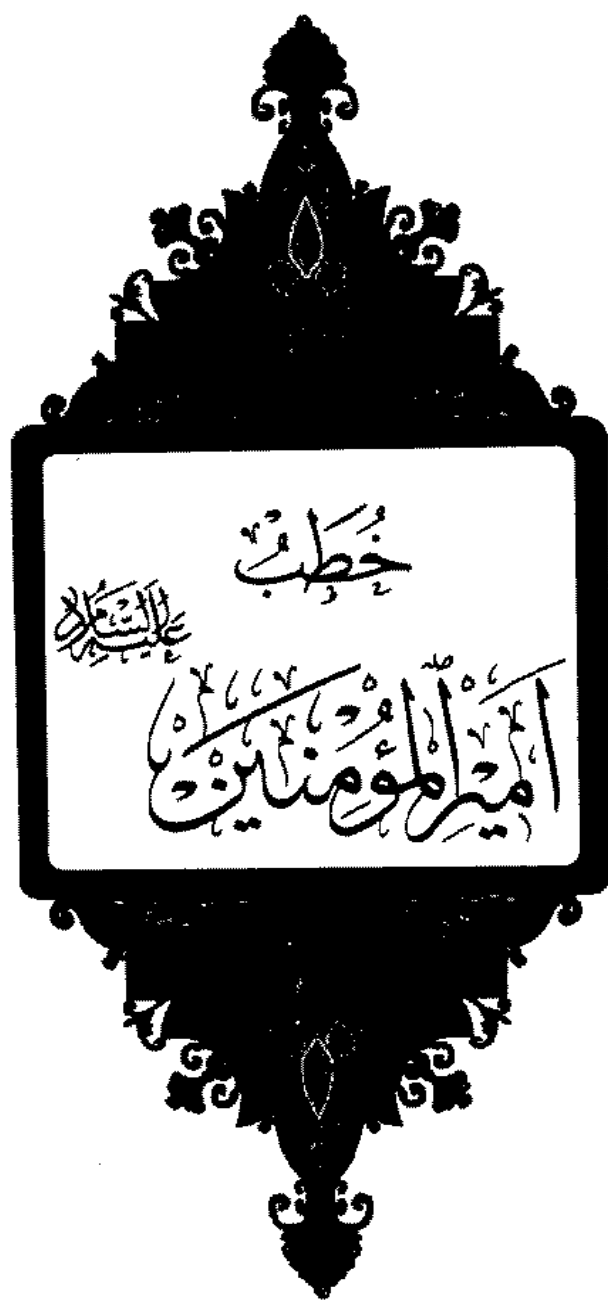 خُطَبُ
أَمِيرِ الْمُؤْمِنِينَ
عَلَيْهِ السَّلَامُ